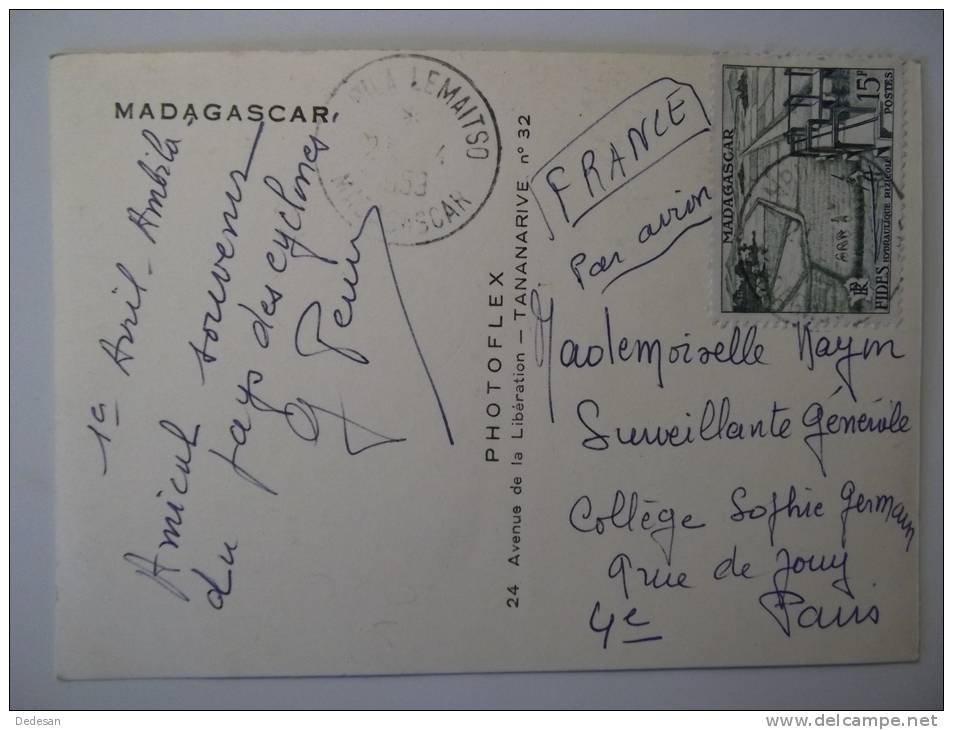 MADAGASCAR
1er Avril - Ambila
Amical souvenir
du pays des cyclones
LEMAITSO
PHOTOFLEX
24 Avenue de la Libération — TANANARIVE n° 32
FRANCE
Par avion
MADAGASCAR
15F
POSTES
RF
FIDES HYDRAULIQUE RIZICOLE
Mademoiselle Mayon
Surveillante Générale
Collège Sophie Germain
9 rue de Jouy
4e Paris
Dedesan
www.delcampe.net